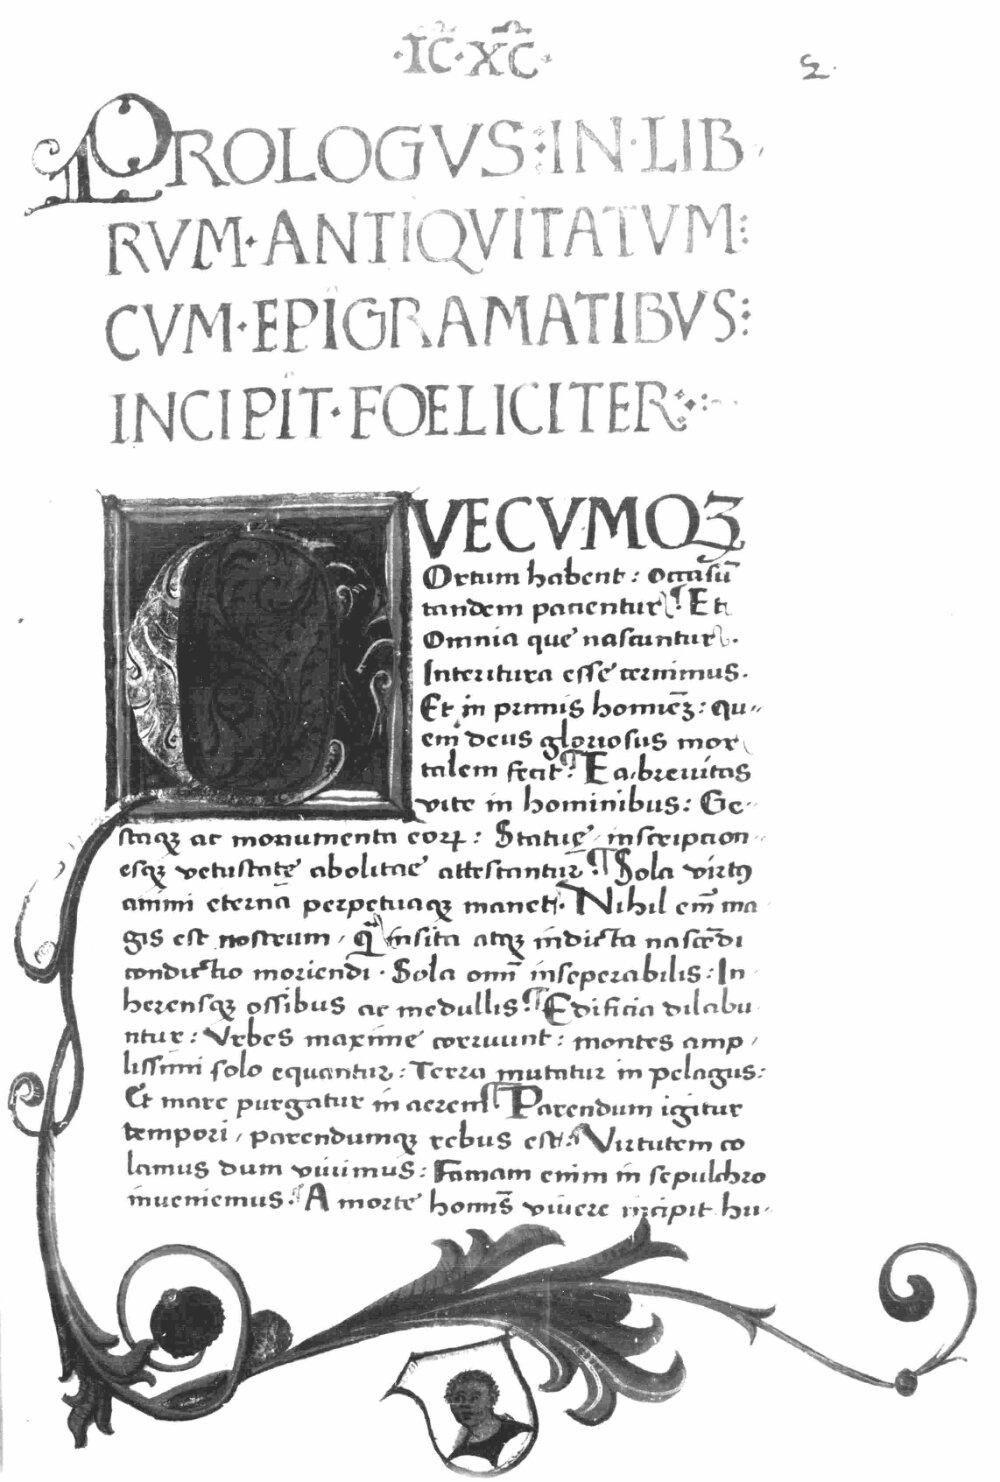 ·IC̅·XC̅·
2·
PROLOGVS:IN·LIB
RVM·ANTIQVITATVM:
CVM·EPIGRAMATIBVS:
INCIPIT·FOELICITER:
QVECVMQꝫ
Ortum habent: occasu̅
tandem patientur. ¶Et
Omnia que nascuntur.
Interitura esse cernimus.
Et in primis homiēꝫ: qu-
em deus gloriosus mor
talem fecit. ¶Ea brevitas
vite in hominibus: Ge-
staqꝫ ac monumenta eorꝝ: Statuę, inscription-
esqꝫ vetustatę abolitae attestantur. ¶Sola virtꝰ
animi eternā perpetuaqꝫ manet. Nihil em̅ ma
gis est nostrum, insita atqꝫ indicta nascēdi
condictio moriendi. Sola om̅i inseperabilis: In
herensqꝫ ossibus ac medullis. ¶Edificia dilabu
ntur: Vrbes maxime corruunt: montes amp,
lissimi solo equantur: Terra mutatur in pelagus:
Et mare purgatur in aerem. ¶Parendum igitur
tempori, parendumqꝫ rebus est. ¶Virtutem co
lamus dum vivimus: Famam enim in sepulchro
inveniemus. ¶A morte homīs vivere incipit. hu-